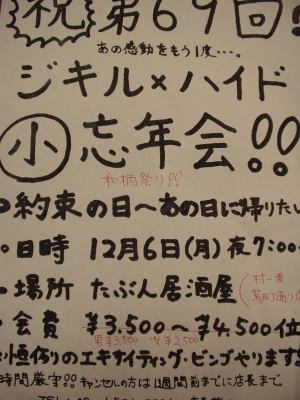 祝 第69回!
あの感動をもう1度・・・。
ジキル×ハイド
小 忘年会!!
和柄祭り!!
約束の日〜あの日に帰りたい
・日時 12月6日(月)夜7:00〜
・場所 たぶん居酒屋
村一番
・会費 ¥3.500〜¥4.500位
男¥3,500 女¥2,500
恒例のエキサイティング・ビンゴやります!
時間厳守!! キャンセルの方は1週間前までに店長まで。